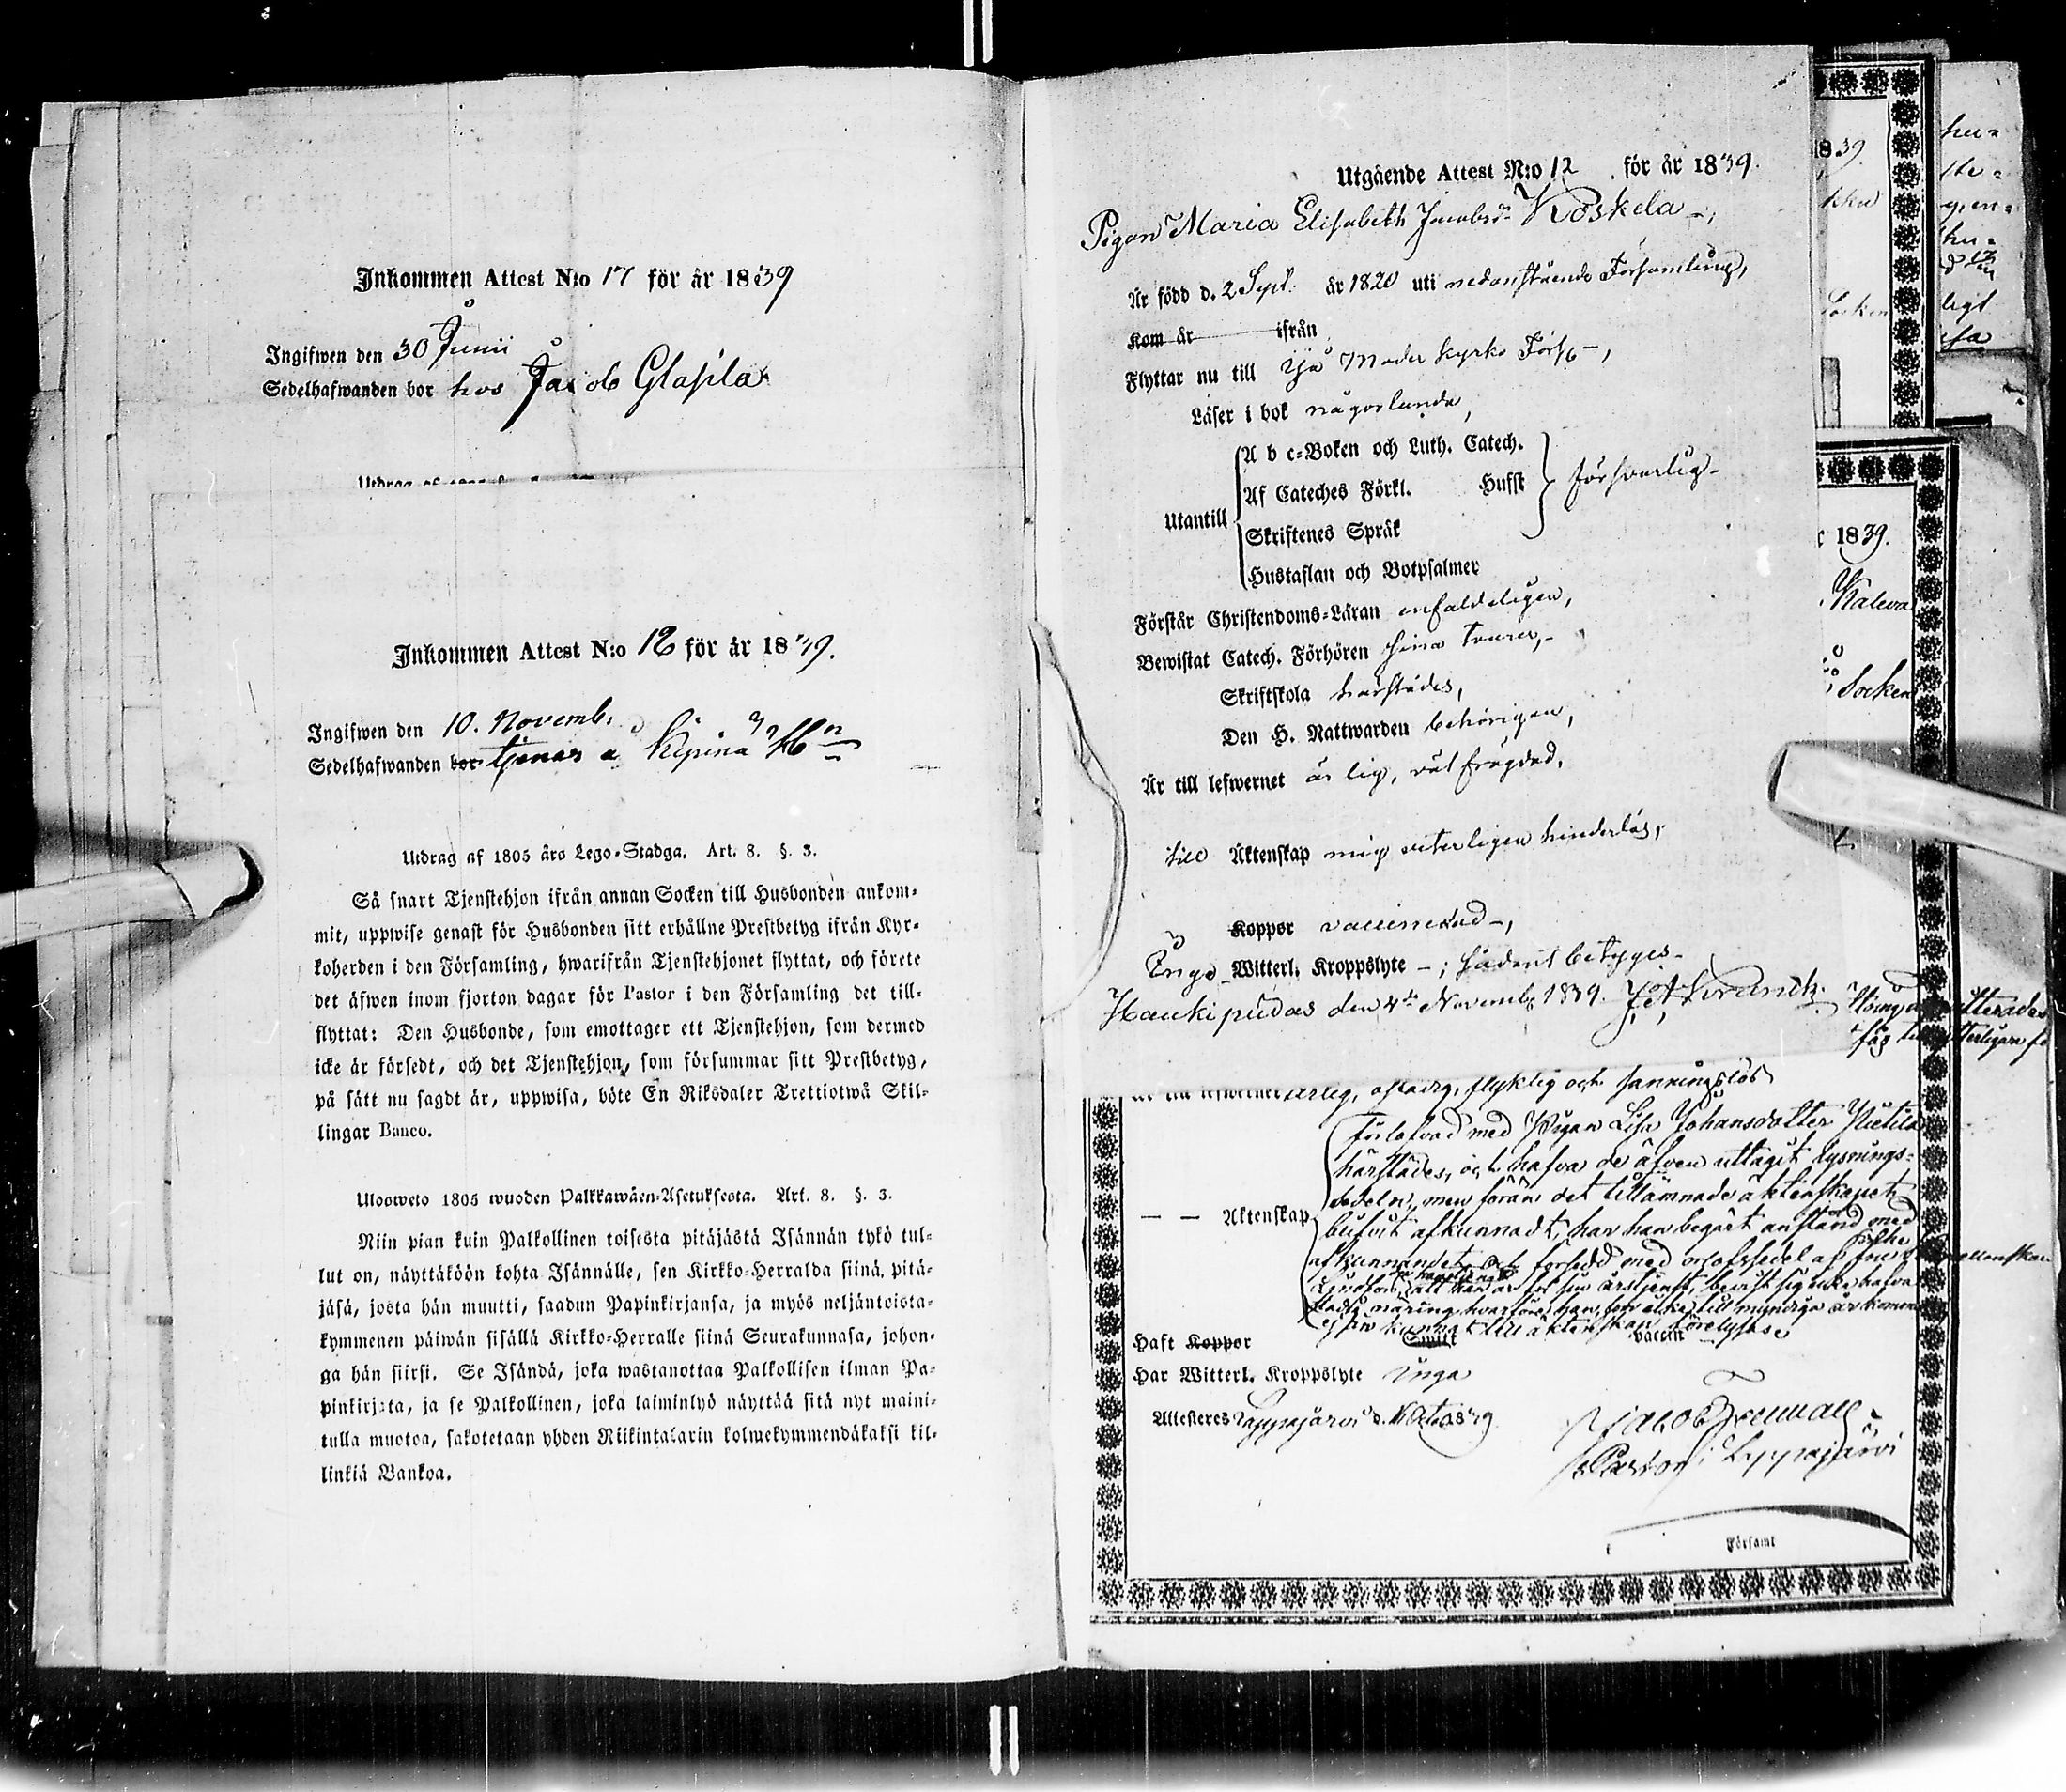 Inkommen Attest N:o 17 för år 1839
Ingifwen den 30 Junii
Sedelhafwanden bor hos Jacob Glasila
Inkommen Attest N:o 12 för år 1839.
Ingifwen den 10. Novemb.
Sedelhafwanden bor tjenar å Kipinä Hn
Utdrag af 1805 års Lego-Stadga. Art. 8. §. 3.
Så snart Tjenstehjon ifrån annan Socken till Husbonden ankom-
mit, uppwise genast för Husbonden sitt erhållne Prestbetyg ifrån Kyr-
koherden i den Församling, hwarifrån Tjenstehjonet flyttat, och förete
det äfwen inom fjorton dagar för Pastor i den Församling det till-
flyttat: Den Husbonde, som emottager ett Tjenstehjon, som dermed
icke är försedt, och det Tjenstehjon, som försummar sitt Prestbetyg,
på sätt nu sagdt är, uppwisa, böte En Riksdaler Trettiotwå Skil-
lingar Banco.
Ulosweto 1805 wuoden Palkkawäen-Asetuksesta. Art. 8. §. 3.
Niin pian kuin Palkollinen toisesta pitäjästä Isännän tykö tul-
lut on, näyttäköön kohta Isännälle, sen Kirkko-Herralda siinä pitä-
jäsä, josta hän muutti, saadun Papinkirjansa, ja myös neljäntoista-
kymmenen päiwän sisällä Kirkko-Herralle siinä Seurakunnasa, johon-
ga hän siirsi. Se Isändä, joka wastanottaa Palkollisen ilman Pa-
pinkirjata, ja se Palkollinen, joka laiminlyö näyttää sitä nyt maini-
tulla muotoa, sakotetaan yhden Riikintalarin kolmekymmendäkaksi kil-
linkiä Bankoa.
Utgående Attest N:o 12 för år 1839.
Pigan Maria Elisabeth Jacobsdr Koskela
Är född d. 2 Sept. år 1820 uti nedanstående Församling,
Kom år ifrån
Flyttar nu till Ijo Moder kyrko Förs
Läser i bok någorlunda,
A b c-Boken och Luth. Catech.
Af Cateches Förkl. Hufst försvarlig
Utantill
Skriftenes Språk
Hustaflan och Botpsalmer
Förstår Christendoms-Läran enfaldeligen,
Bewistat Catech. Förhören sina tourer,
Skriftskola härstädes,
Den H. Nattwarden behörigen,
Är till lefwernet ärlig, väl frägdad,
till Äktenskap mig veterligen hinderlös,
Koppor vaccinerad
Inga Witterl. Kroppslyte ; sådant betyges
Haukipudas den 4de Novemb. 1839.
förlofvad med Pigan Lisa Johansdotter
härstädes, och hafva de äfven uttagit Lysnings-
sedeln, men förän det tillämnade äktenskapet
blifvit afkunnadt, har han begärt anstånd med
— — Äktenskap
Haft Koppor
Har Witterl. Kroppslyte Inga
Attesteres Lappajärvi d.
Pastor i Lappajärvi
Församl
1839.
Socken
r 1839.
Kaleva
Socken